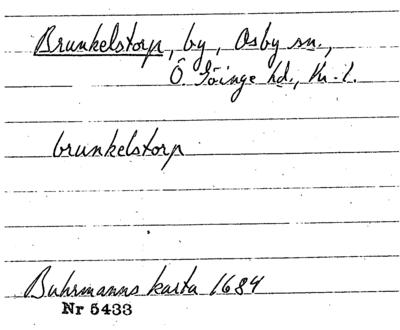 Brunkelstorp, by, Osby sn.,
Ö. Göinge hd., Kr. l.
brunkelstorp
Buhrmanns karta 1684
Nr 5433